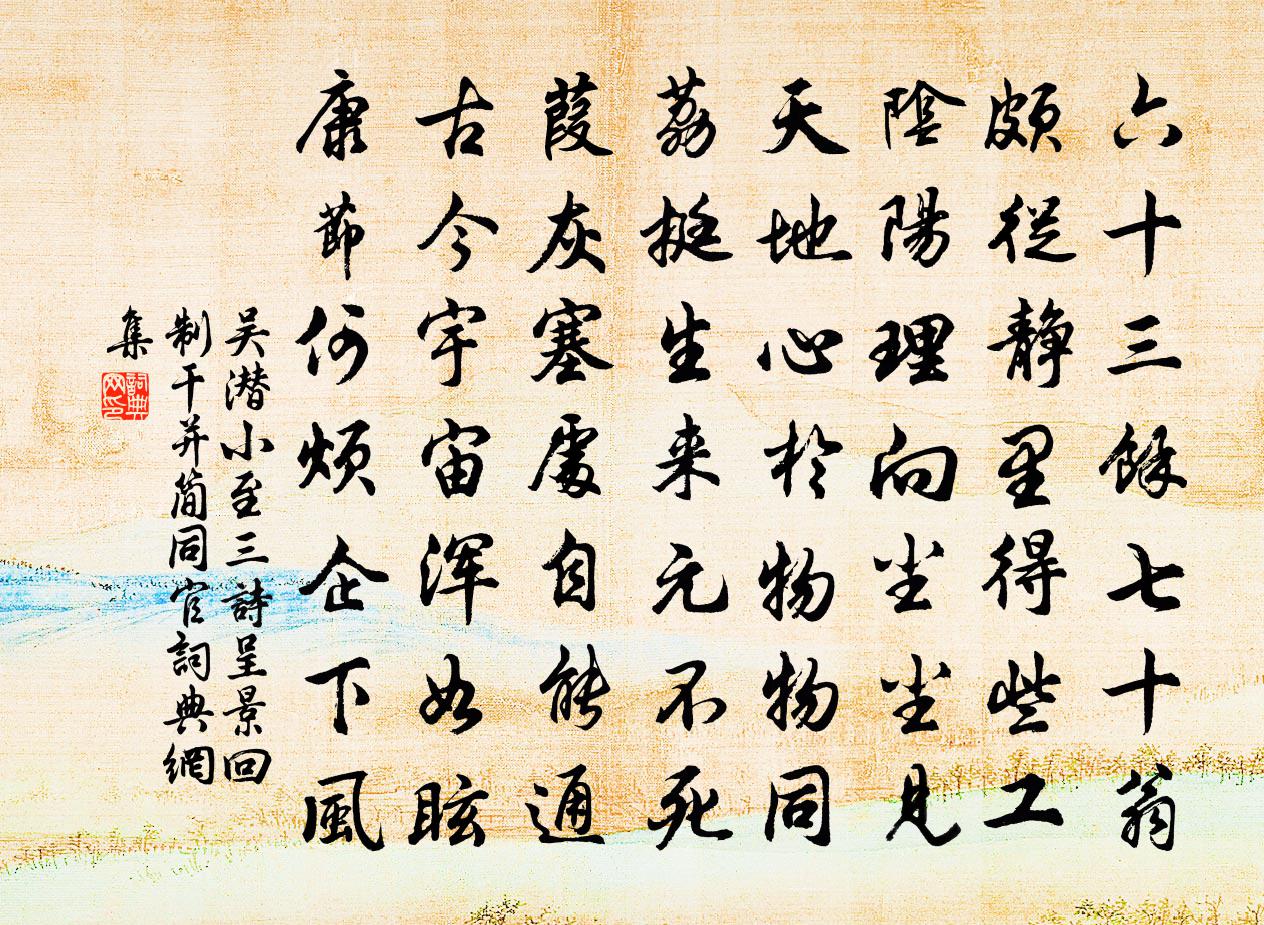 六十三餘七十翁
頗從靜里得些工
陰陽理向坐坐見
天地心於物物同
荔挺生来元不死
葭灰塞處自能通
古今宇宙渾如眩
康節何煩企下風
吴潜小至三詩呈景回
制干并簡同官詞典網
集
詞典
网印